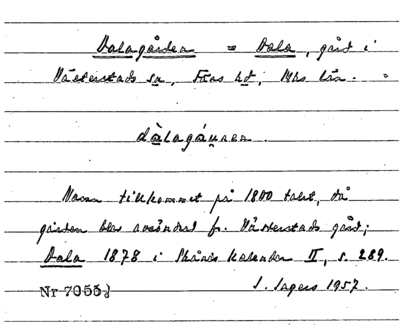 Dalagården = Dala, gård i
Västerstads sn, Färs hd, Mhs län.
dàlagá̱ṟen.
Namn tillkommet på 1800 talet, då
gården blev avsöndrad fr. Västerstads gård;
Dala 1878 i Skånes Kalender II, s. 289.
Nr 7055; S. Sagers 1957.